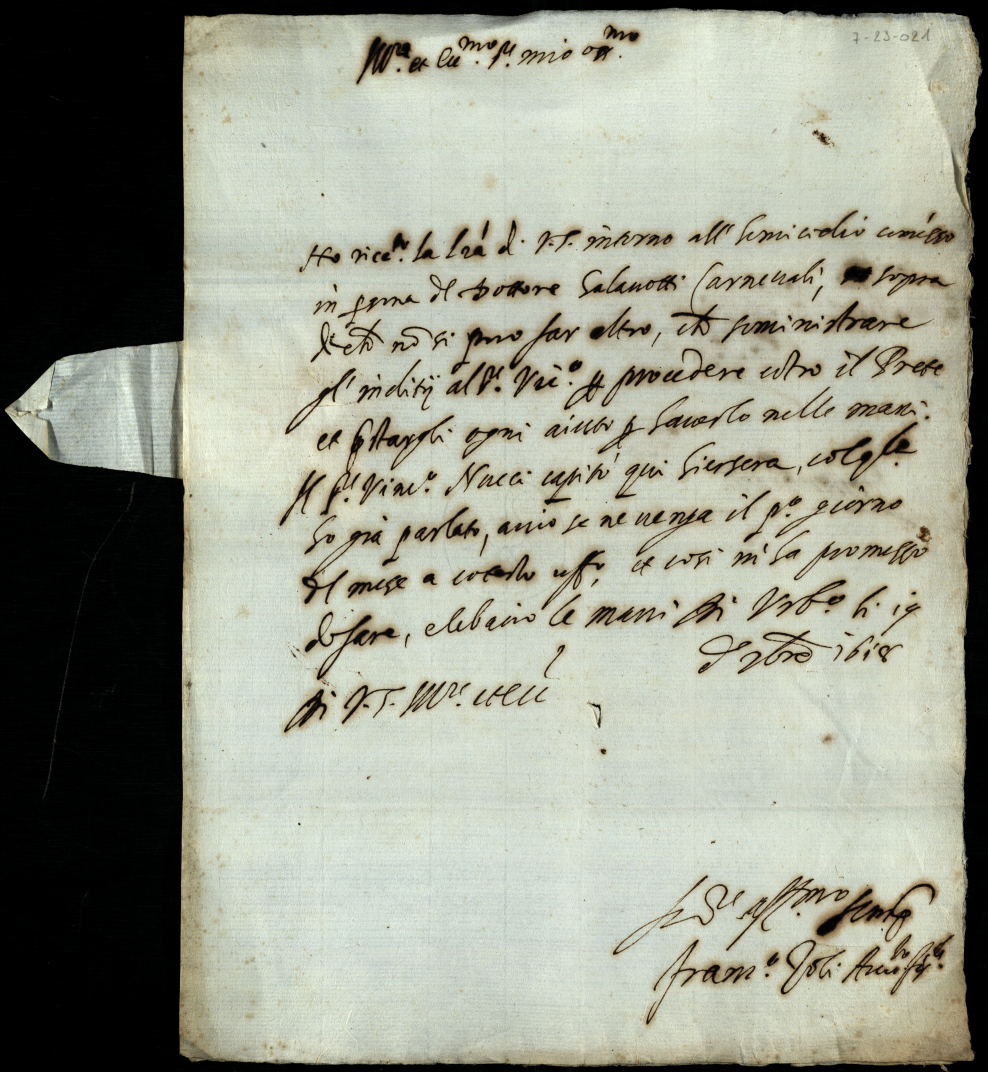 7-23-021
Ill.re et Ecc.mo S.r mio oss.mo
Ho rice.to la l'ra di V.S. intorno all'homicidio com'esso
in p'sona del Dottore Galauotti Carneuali, sopra
di che nō si può far altro, che suministrare
gl'inditij al S.r Vic.o p procedere cōtro il Prete
et p'stargli ogni aiuto p hauerlo nelle mani.
Il S.r Vinc.o Nucci capitò qui hiersera, col q'le
ho già parlato, acciò se ne uenga il p.o giorno
del mese a cotesto uff.o, et così mi ha promesso
di fare, e le bacio le mani Di Urb.o li 19
di 1618
Di V.S. Ill.re et Ecc
Ser.re aff.mo
Fran.co